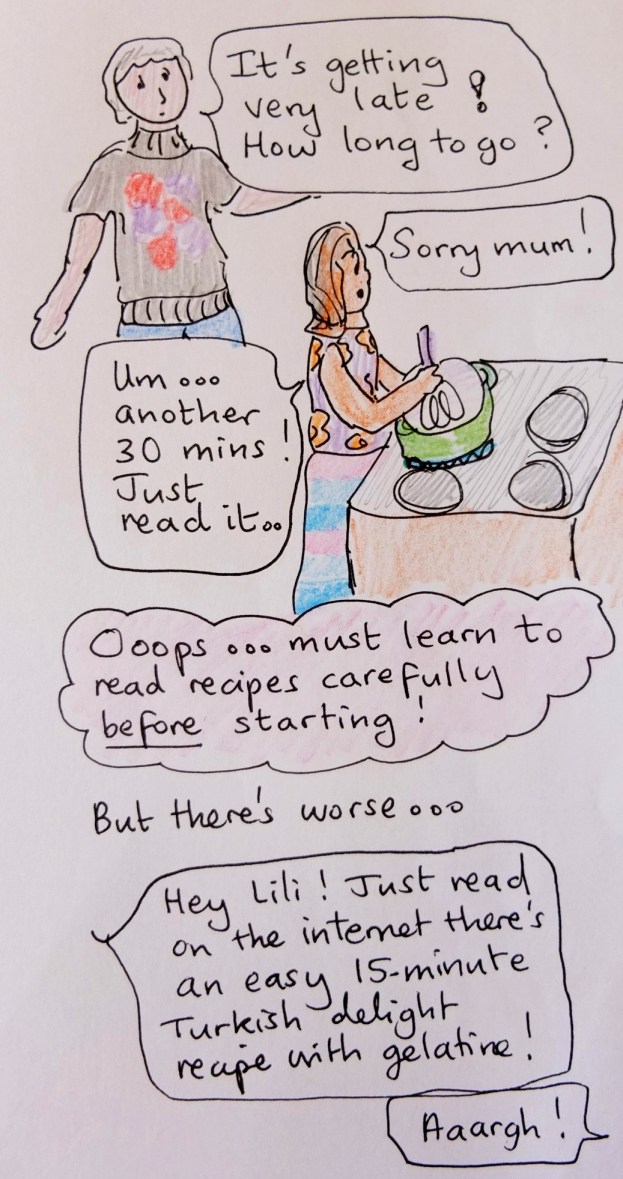 It's getting
very late !
How long to go ?
Sorry mum!
Um ...
another
30 mins !
Just
read it..
Ooops ... must learn to
read recipes carefully
before starting !
But there's worse ...
Hey Lili ! Just read
on the internet there's
an easy 15-minute
Turkish delight
recipe with gelatine !
Aaargh !